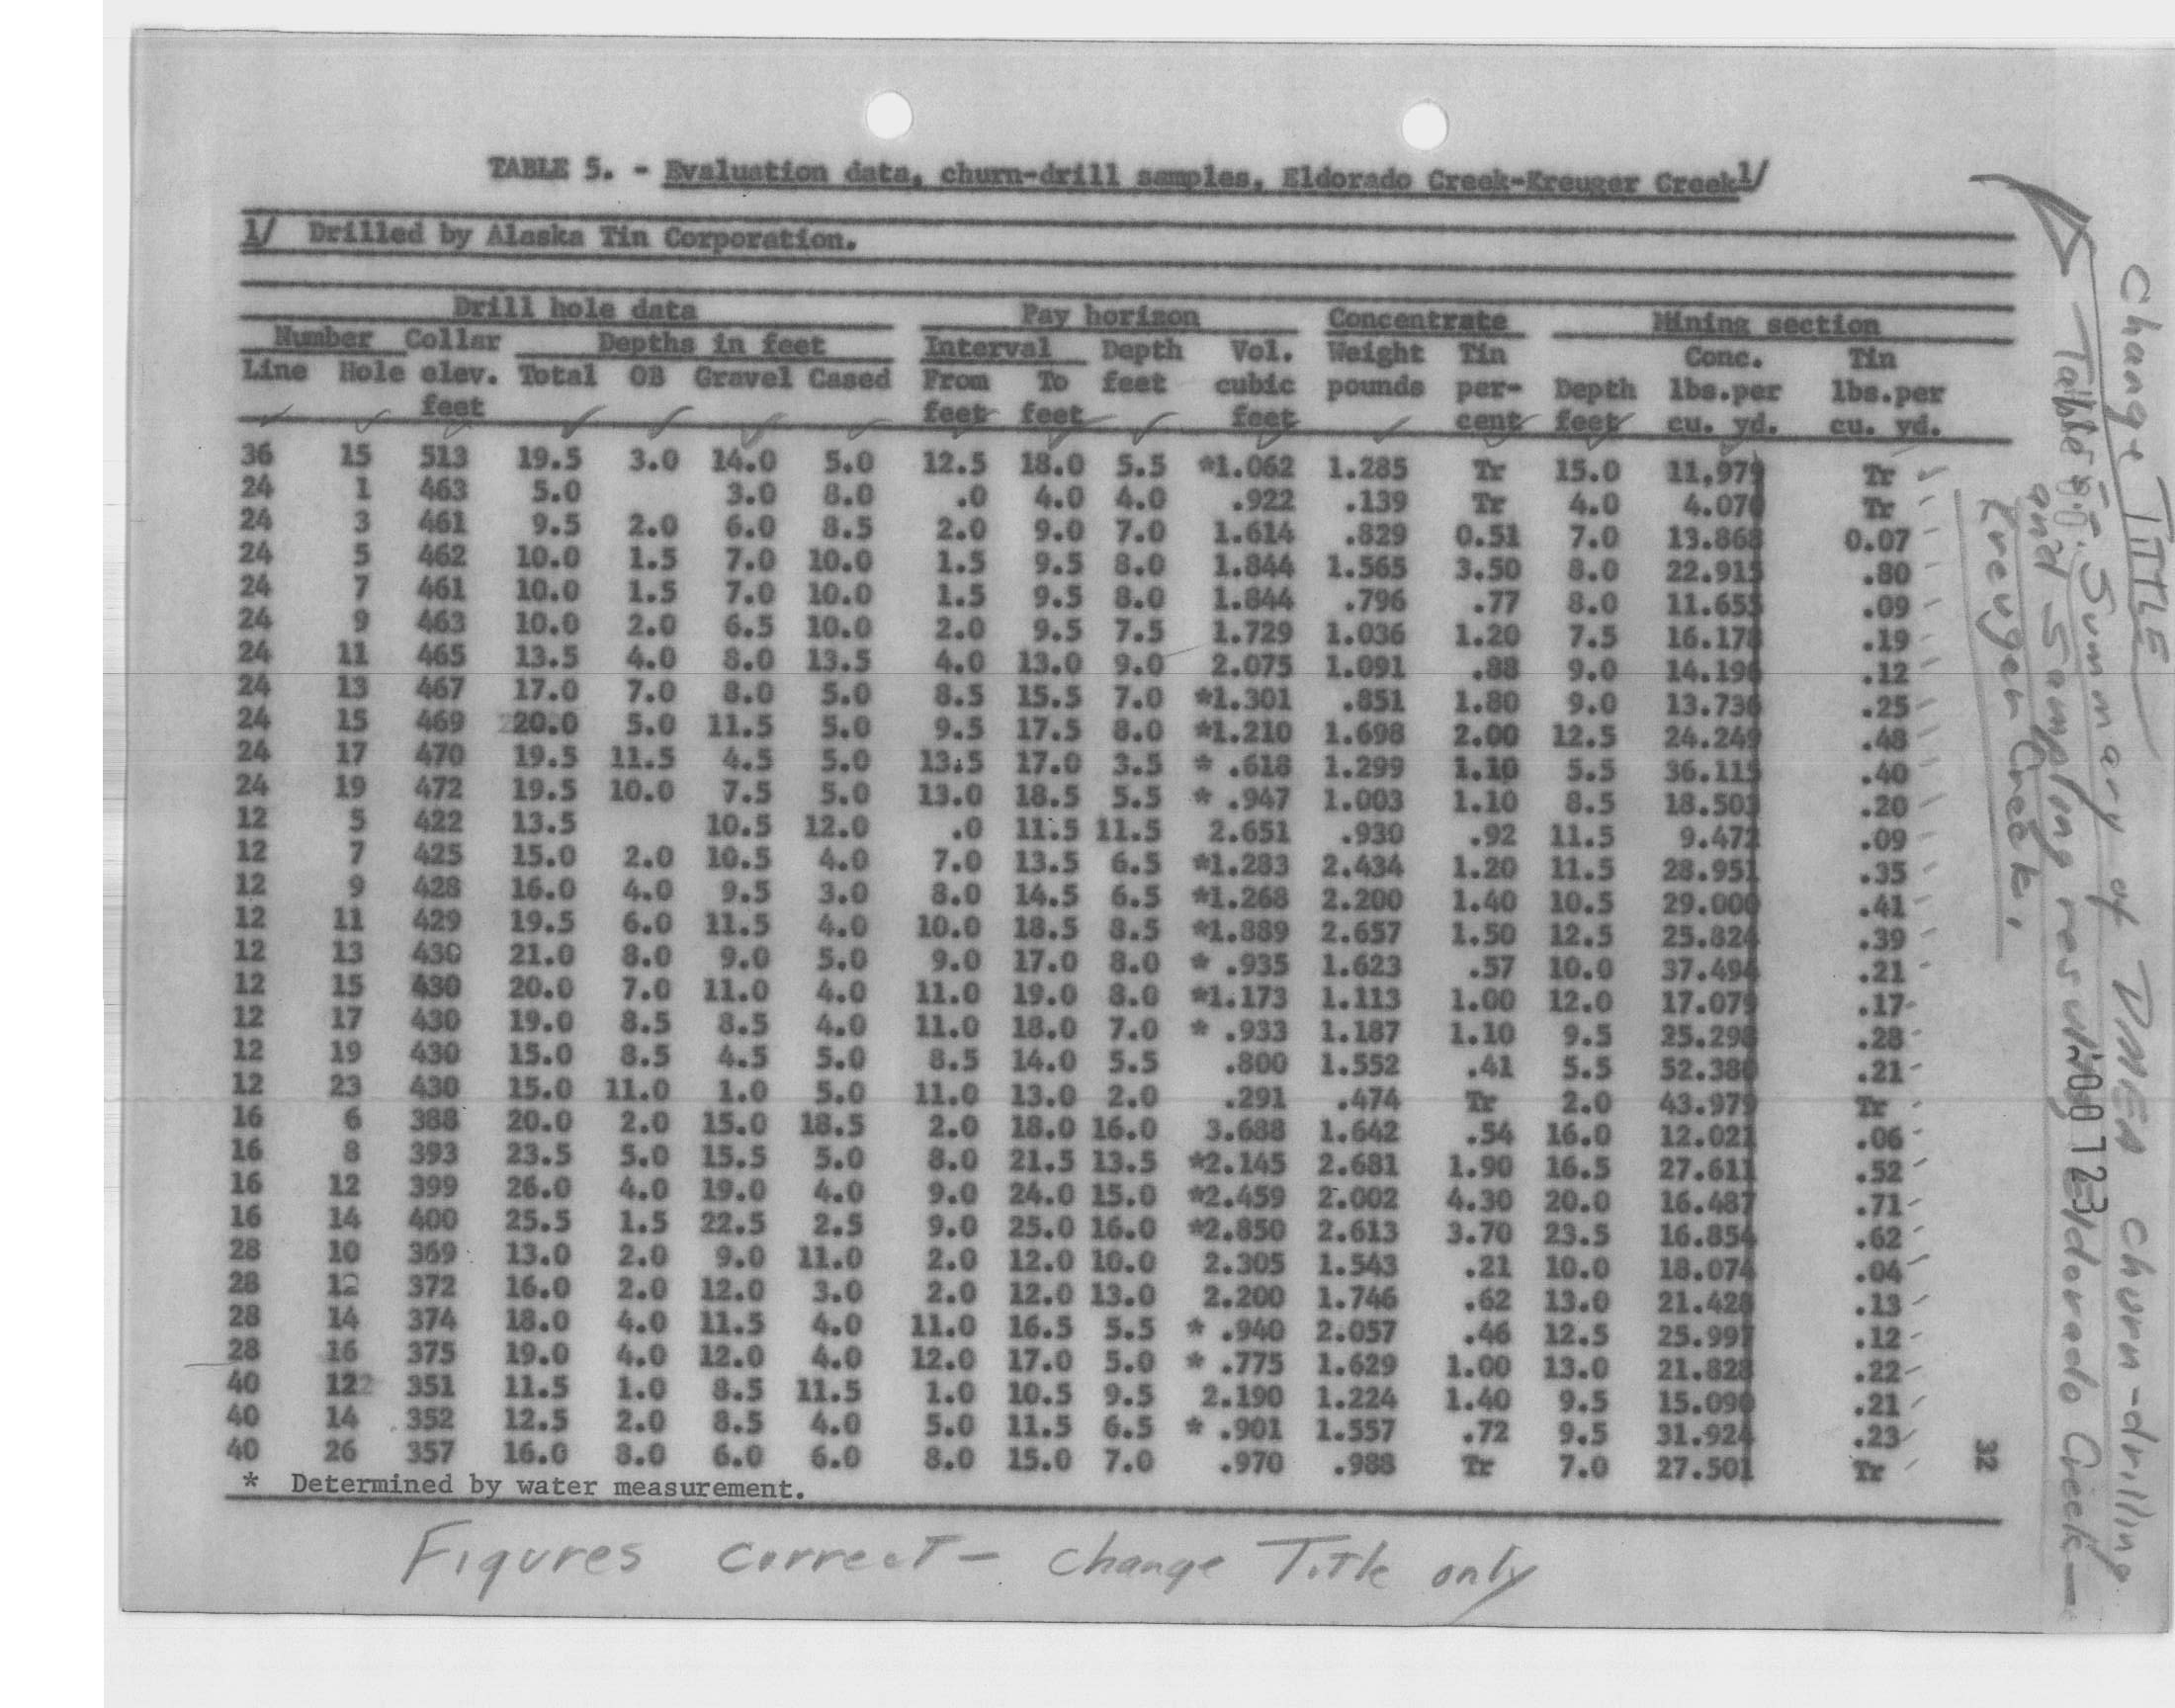 TABLE 5. - Evaluation data, churn-drill samples, Eldorado Creek-Kreuger Creek1/
1/ Drilled by Alaska Tin Corporation.
Drill hole data Pay horizon Concentrate Mining section
Number Collar Depths in feet Interval Depth Vol. Weight Tin Conc. Tin
Line Hole elev. Total OB Gravel Cased From To feet cubic pounds per- Depth lbs.per lbs.per
feet feet feet feet cent feet cu. yd. cu. yd.
36 15 513 19.5 3.0 14.0 5.0 12.5 18.0 5.5 *1.062 1.285 Tr 15.0 11,979 Tr
24 1 463 5.0 3.0 8.0 .0 4.0 4.0 .922 .139 Tr 4.0 4.070 Tr
24 3 461 9.5 2.0 6.0 8.5 2.0 9.0 7.0 1.614 .829 0.51 7.0 13.868 0.07
24 5 462 10.0 1.5 7.0 10.0 1.5 9.5 8.0 1.844 1.565 3.50 8.0 22.915 .80
24 7 461 10.0 1.5 7.0 10.0 1.5 9.5 8.0 1.844 .796 .77 8.0 11.655 .09
24 9 463 10.0 2.0 6.5 10.0 2.0 9.5 7.5 1.729 1.036 1.20 7.5 16.178 .19
24 11 465 13.5 4.0 8.0 13.5 4.0 13.0 9.0 2.075 1.091 .88 9.0 14.196 .12
24 13 467 17.0 7.0 8.0 5.0 8.5 15.5 7.0 *1.301 .851 1.80 9.0 13.736 .25
24 15 469 20.0 5.0 11.5 5.0 9.5 17.5 8.0 *1.210 1.698 2.00 12.5 24.249 .48
24 17 470 19.5 11.5 4.5 5.0 13.5 17.0 3.5 * .618 1.299 1.10 5.5 36.115 .40
24 19 472 19.5 10.0 7.5 5.0 13.0 18.5 5.5 * .947 1.003 1.10 8.5 18.503 .20
12 5 422 13.5 10.5 12.0 .0 11.5 11.5 2.651 .930 .92 11.5 9.472 .09
12 7 425 15.0 2.0 10.5 4.0 7.0 13.5 6.5 *1.283 2.434 1.20 11.5 28.951 .35
12 9 428 16.0 4.0 9.5 3.0 8.0 14.5 6.5 *1.268 2.200 1.40 10.5 29.000 .41
12 11 429 19.5 6.0 11.5 4.0 10.0 18.5 8.5 *1.889 2.657 1.50 12.5 25.824 .39
12 13 430 21.0 8.0 9.0 5.0 9.0 17.0 8.0 * .935 1.623 .57 10.0 37.494 .21
12 15 430 20.0 7.0 11.0 4.0 11.0 19.0 8.0 *1.173 1.113 1.00 12.0 17.079 .17
12 17 430 19.0 8.5 8.5 4.0 11.0 18.0 7.0 * .933 1.187 1.10 9.5 25.298 .28
12 19 430 15.0 8.5 4.5 5.0 8.5 14.0 5.5 .800 1.552 .41 5.5 52.380 .21
12 23 430 15.0 11.0 1.0 5.0 11.0 13.0 2.0 .291 .474 Tr 2.0 43.979 Tr
16 6 388 20.0 2.0 15.0 18.5 2.0 18.0 16.0 3.688 1.642 .54 16.0 12.021 .06
16 8 393 23.5 5.0 15.5 5.0 8.0 21.5 13.5 *2.145 2.681 1.90 16.5 27.611 .52
16 12 399 26.0 4.0 19.0 4.0 9.0 24.0 15.0 *2.459 2.002 4.30 20.0 16.487 .71
16 14 400 25.5 1.5 22.5 2.5 9.0 25.0 16.0 *2.850 2.613 3.70 23.5 16.854 .62
28 10 369 13.0 2.0 9.0 11.0 2.0 12.0 10.0 2.305 1.543 .21 10.0 18.074 .04
28 12 372 16.0 2.0 12.0 3.0 2.0 12.0 13.0 2.200 1.746 .62 13.0 21.428 .13
28 14 374 18.0 4.0 11.5 4.0 11.0 16.5 5.5 * .940 2.057 .46 12.5 25.997 .12
28 16 375 19.0 4.0 12.0 4.0 12.0 17.0 5.0 * .775 1.629 1.00 13.0 21.828 .22
40 12 351 11.5 1.0 8.5 11.5 1.0 10.5 9.5 2.190 1.224 1.40 9.5 15.090 .21
40 14 352 12.5 2.0 8.5 4.0 5.0 11.5 6.5 * .901 1.557 .72 9.5 31.924 .23
40 26 357 16.0 8.0 6.0 6.0 8.0 15.0 7.0 .970 .988 Tr 7.0 27.501 Tr
* Determined by water measurement.
Figures correct - change Title only
Change TITLE
Table 5. - Summary of DMEA churn-drilling
and sampling results, Eldorado Creek -
Kreuger Creek.
32